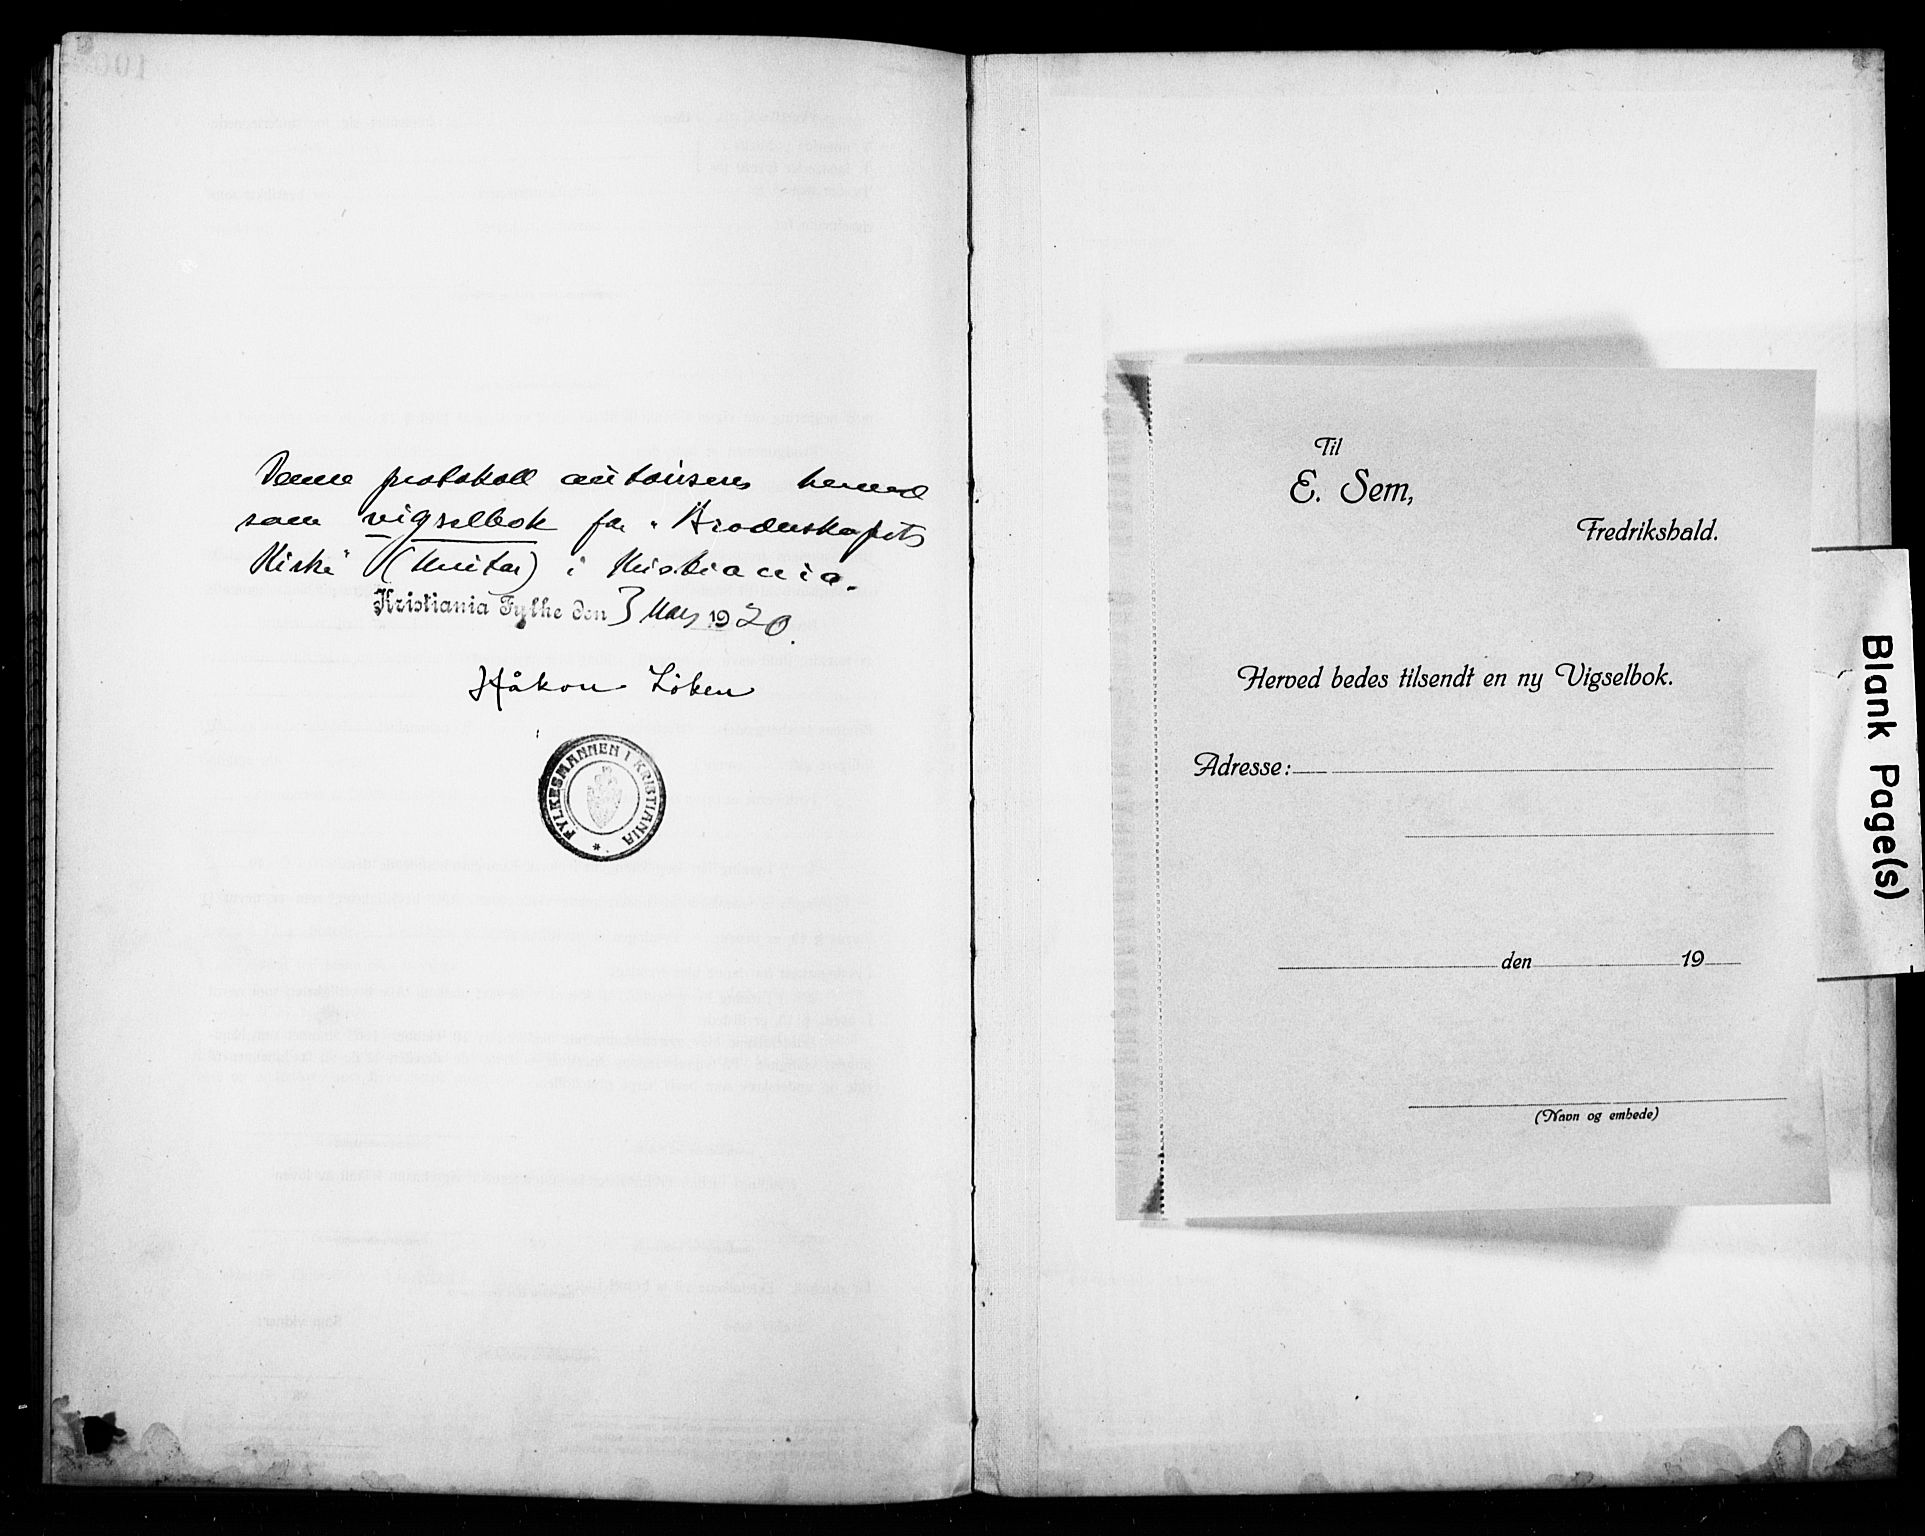 Denne protokoll autoriseres herved
som vigselbok for "Broderskapets
Kirke" (Unitar) i Kristiania.
Kristiania Fylke den 3 Mars 1920.
Håkon Löken
FYLKESMANNEN I KRISTIANIA *
Til
E. Sem,
Fredrikshald.
Herved bedes tilsendt en ny Vigselbok.
Adresse:
den 19
(Navn og embede)
Blank Page(s)